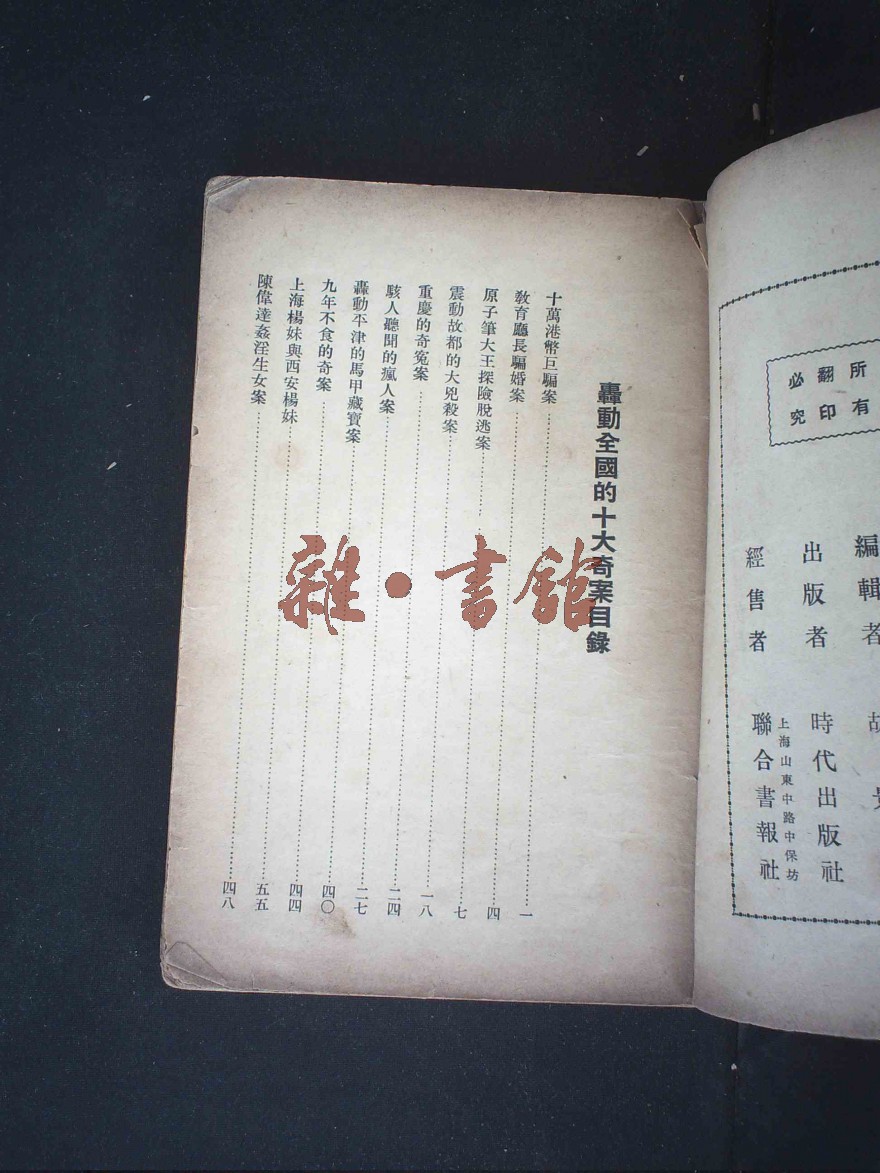 所有
翻印
必究
編輯者 胡
出版者 時代出版社
上海山東中路中保坊
經售者 聯合書報社
轟動全國的十大奇案目錄
十萬港幣巨騙案…………一
教育廳長騙婚案…………四
原子筆大王探險脫逃案…………七
震動故都的大兇殺案…………一八
重慶的奇冤案…………二四
駭人聽聞的瘋人案…………二七
轟動平津的馬甲藏寶案…………四〇
九年不食的奇案…………四四
上海楊妹與西安楊妹…………五五
陳偉達姦淫生女案…………四八
雜·書館